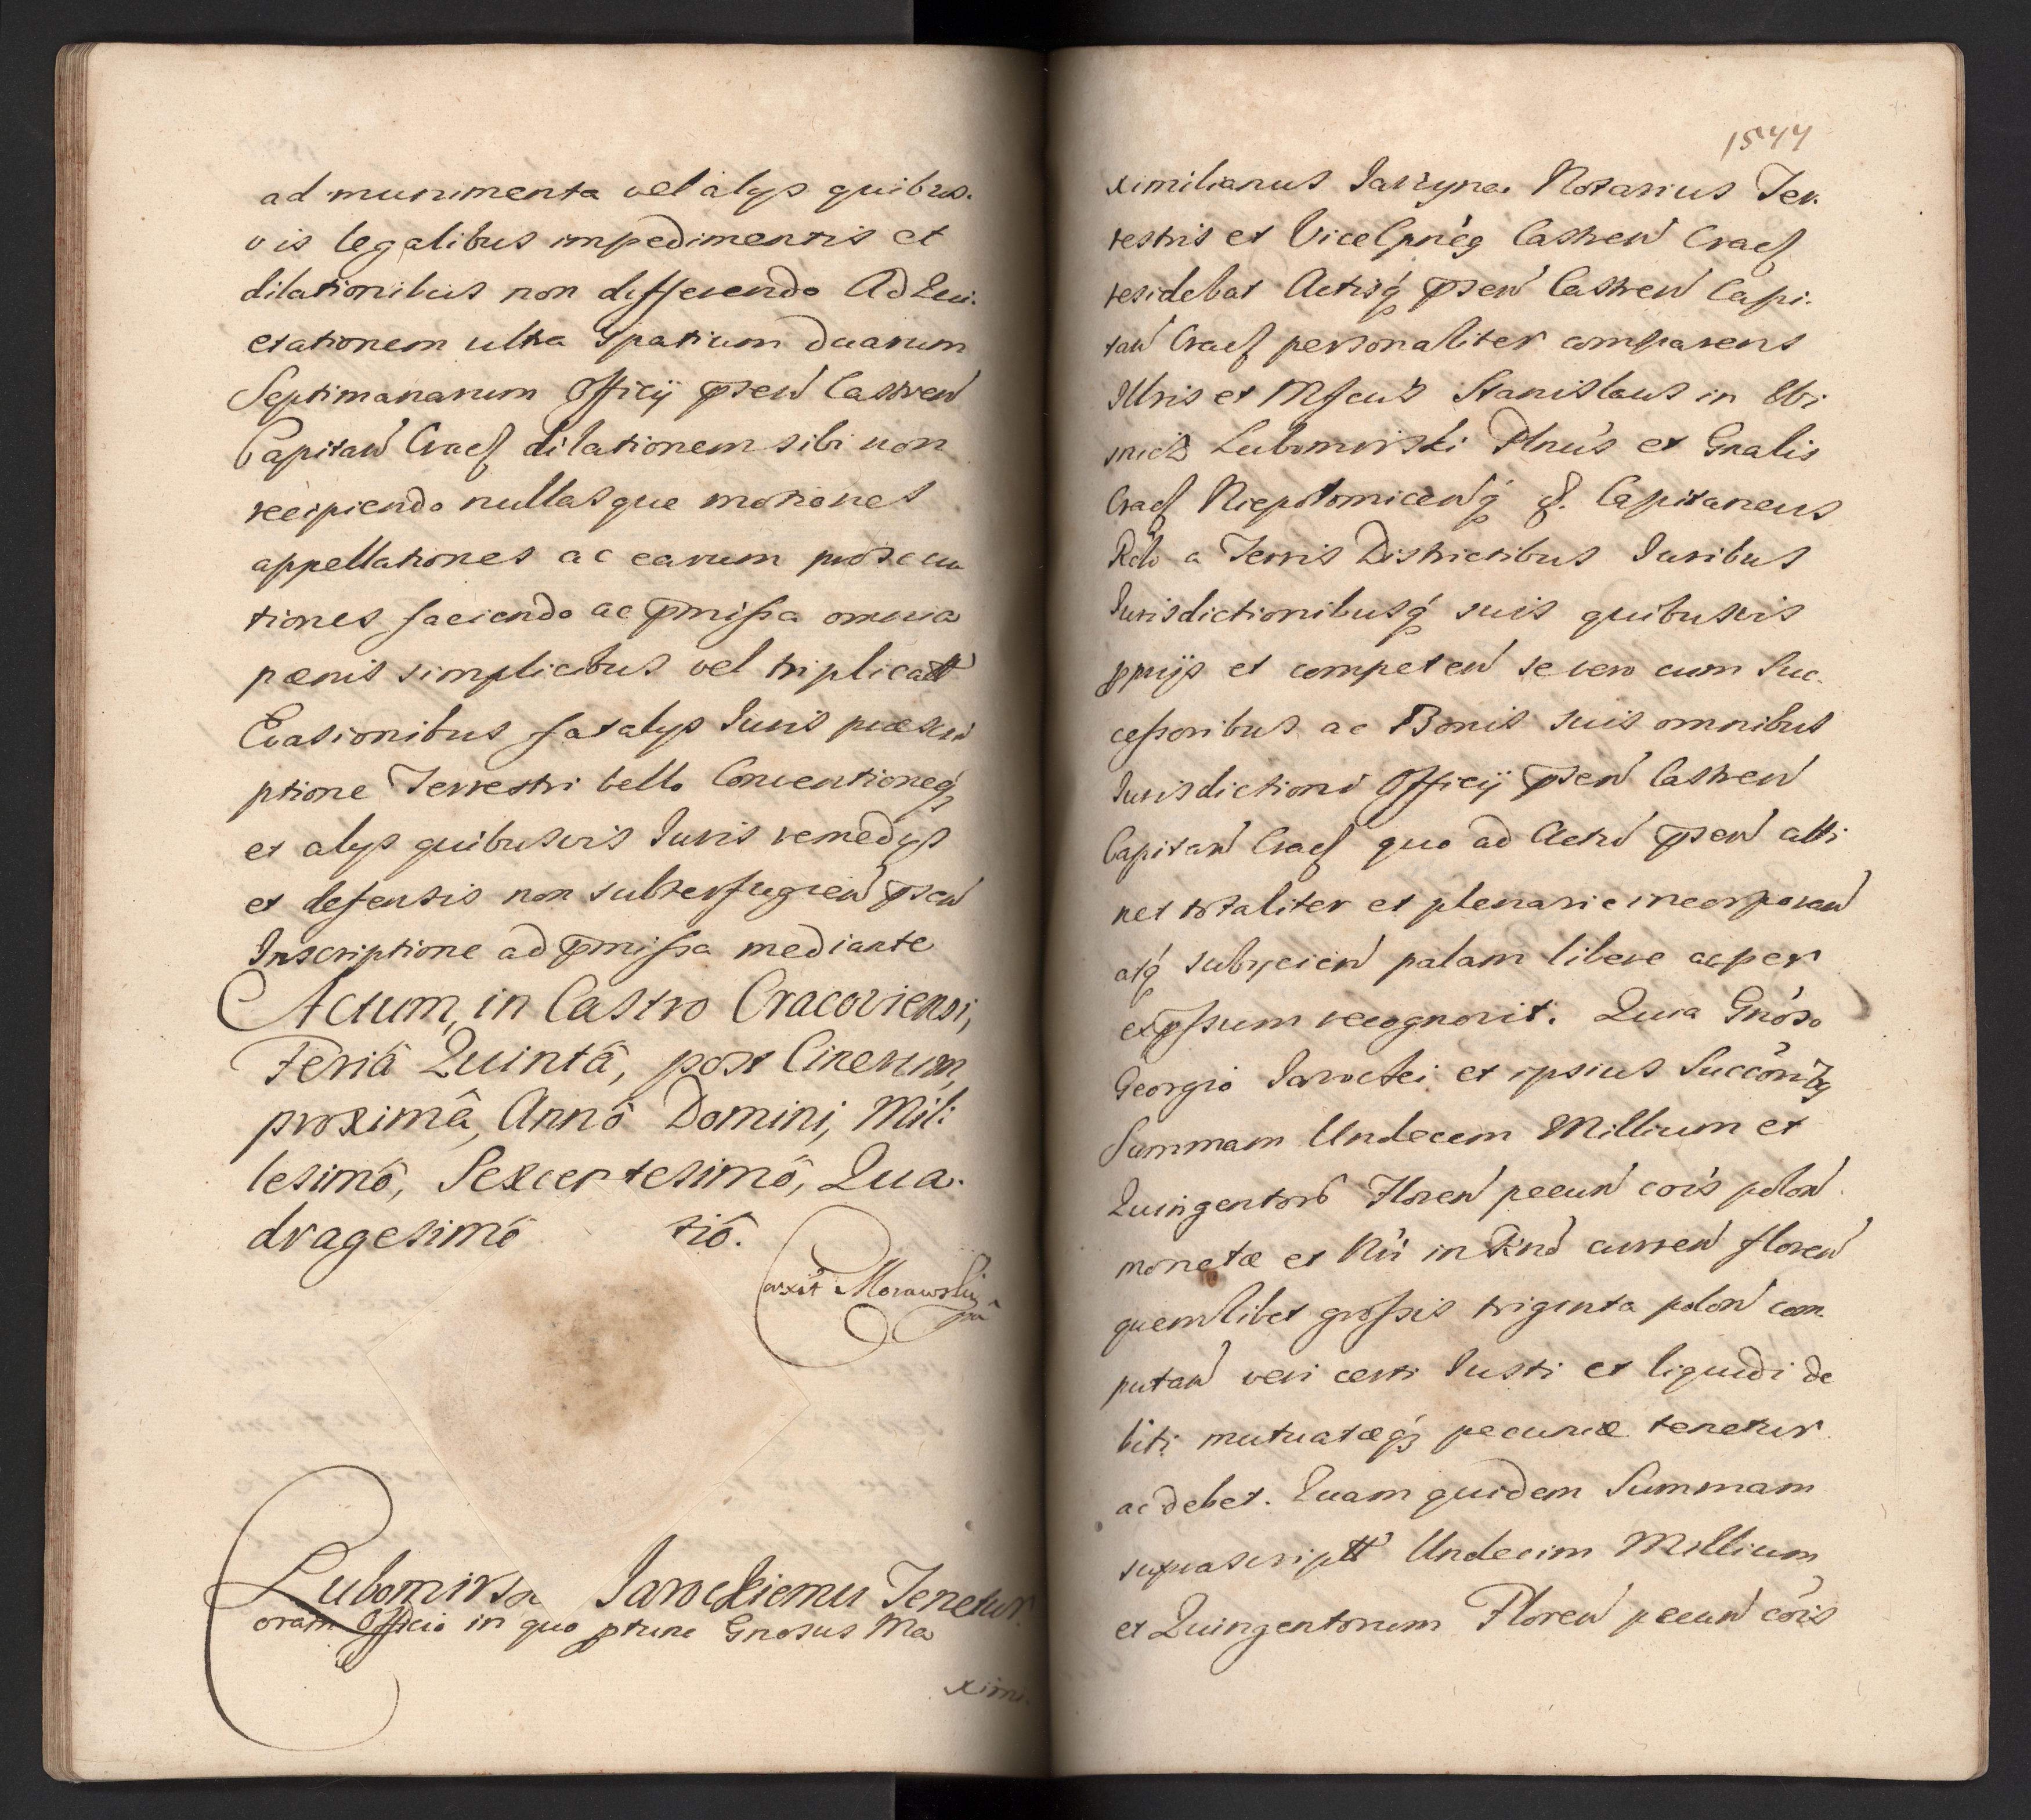 ad munimenta vel alijs quibus.
vis legalibus impedimentis et
dilationibus non differendo Ad Qui.
etationem ultra Spatium Duarum
Septimanarum Officij pñsen Castren
Capitan Cracf dilationem sibi non
recipiendo nullasque motiones
appellationes ac earum prosecu
tiones faciendo ac pmissa omnia
pænis simplicibus vel triplicatt
Evasionibus fatalijs Iuris præscri
ptione Terrestri bello Conventioneq
et alijs quibusvis Iuris remedijs
et defensis non subterfugien pñsen
Inscriptione ad pmissa mediante
Actum, in Castro Cracoviensi,
Feriâ Quintâ, post Cinerum,
proximâ, Annô Domini, Mil:
lesimô, Sexcentesimô, Qua.
dragesimô tiô.
Morawski
Lubomirski Iarockiemu Tenetur
oram Officio in quo ptunc Gnosus Ma
ximi.
1544
ximilianus Iarzyna Notarius Ter.
restris et Vice Cpneg Castren Cracf
residebat Actisq pñsen Castren Capi.
tan Cracf personaliter comparens
Illris et Mfcus Stanislaus in Wi
snicz Lubomirski Plnus et Gnalis
Cracf Niepolomicenq &. Capitaneus
Rcto a Terris Districtibus Iuribus
Iurisdictionibusq suis quibusvis
pprijs et competen se vero cum Suc.
cessoribus ac Bonis suis omnibus
Iurisdictioni Officij pñsen Castren
Capitan Cracf quo ad Actu pñsen atti
net totaliter et plenarie incorporan
atq subijcien palam libere ac per
expssum recognovit. Quia Gnoso
Georgio Iarocki et ipsius Succoribq
Summam Undecem Millium et
Quingentoru Floren pecun cois polon
monetæ et Nri in Rno curren floren
quemlibet grossis triginta polon com
putan veri certi Iusti et liquidi de
biti mutuatæq pecuniæ tenetur
ac debet. Quam quidem Summam
suprascriptt Undecim Millium
et Quingentorum Floren pecun cois